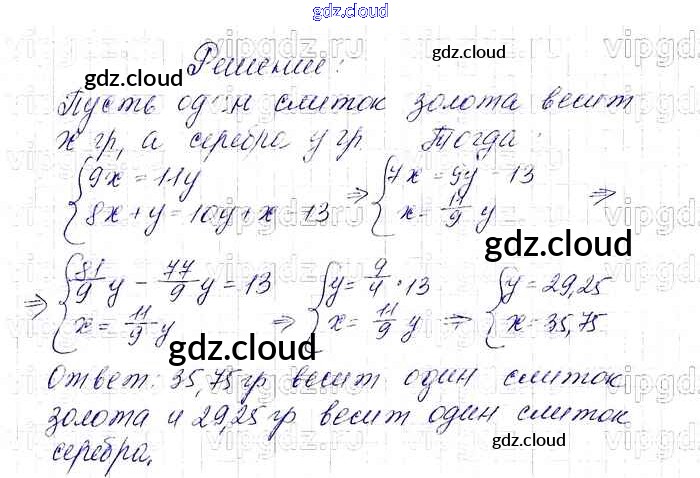 gdz.cloud
Решение:
gdz.cloud
gdz.cloud
Пусть один слиток золота весит
x гр, а серебра y гр Тогда:
{9x = 11y
8x + y = 10y + x - 13
⇒ {7x = 9y - 13
x = 11/9 y ⇒
gdz.cloud
⇒ {81/9 y - 77/9 y = 13
x = 11/9 y
⇒ {y = 9/4 · 13
x = 11/9 y
⇒ {y = 29,25
x = 35,75
gdz.cloud
Ответ: 35,75 гр весит один слиток
золота и 29,25 гр весит один слиток
серебра.
gdz.cloud